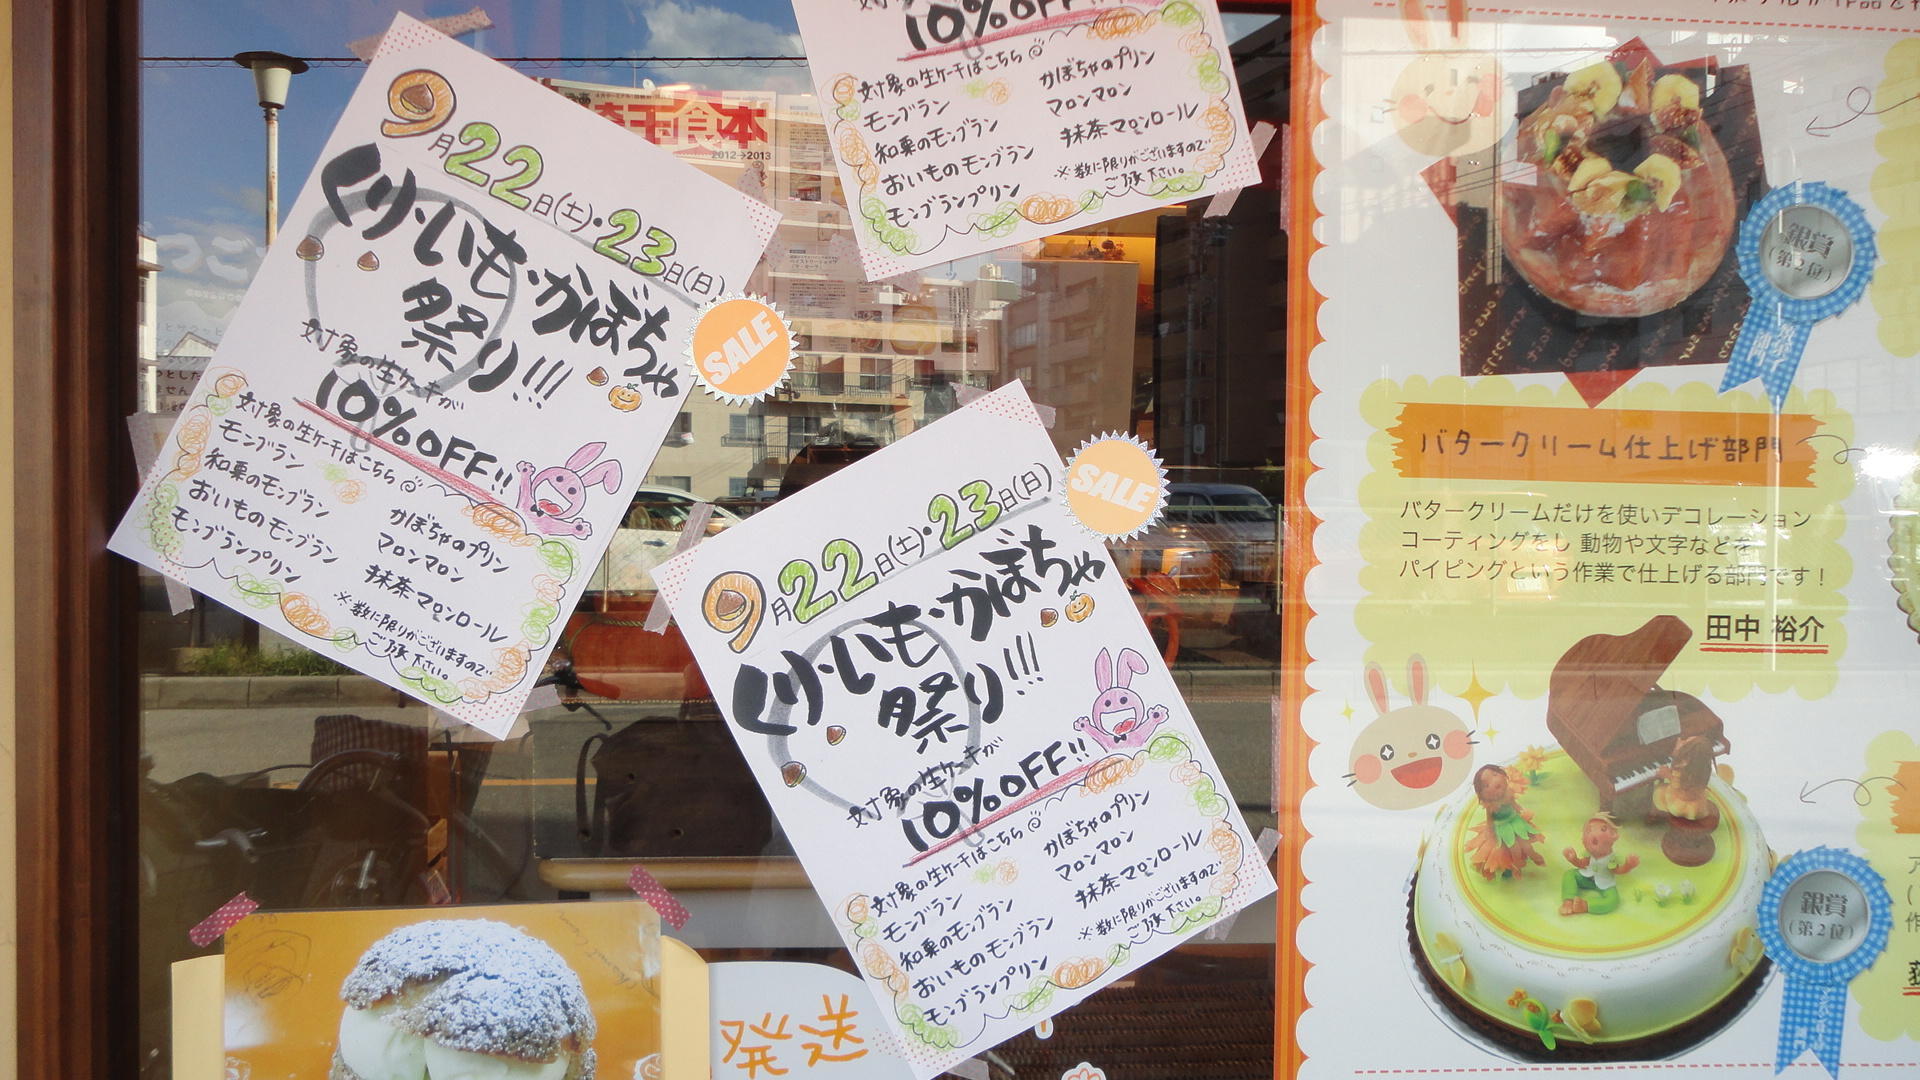 9月22日(土)・23日(日)
くり・いも・かぼちゃ
祭り!!!
対象の生ケーキが
10%OFF!!
対象の生ケーキはこちら
モンブラン
和栗のモンブラン
おいものモンブラン
モンブランプリン
かぼちゃのプリン
マロンマロン
抹茶マロンロール
※数に限りがございますので
ご了承下さい。
SALE
埼玉食本
2012→2013
10%OFF!!
対象の生ケーキはこちら
モンブラン
和栗のモンブラン
おいものモンブラン
モンブランプリン
かぼちゃのプリン
マロンマロン
抹茶マロンロール
※数に限りがございますので
ご了承下さい。
9月22日(土)・23日(日)
くり・いも・かぼちゃ
祭り!!!
対象の生ケーキが
10%OFF!!
対象の生ケーキはこちら
モンブラン
和栗のモンブラン
おいものモンブラン
モンブランプリン
かぼちゃのプリン
マロンマロン
抹茶マロンロール
※数に限りがございますので
ご了承下さい。
SALE
発送
銀賞
(第2位)
バタークリーム仕上げ部門
バタークリームだけを使いデコレーション
コーティングをし 動物や文字などを
パイピングという作業で仕上げる部門です!
田中 裕介
銀賞
(第2位)